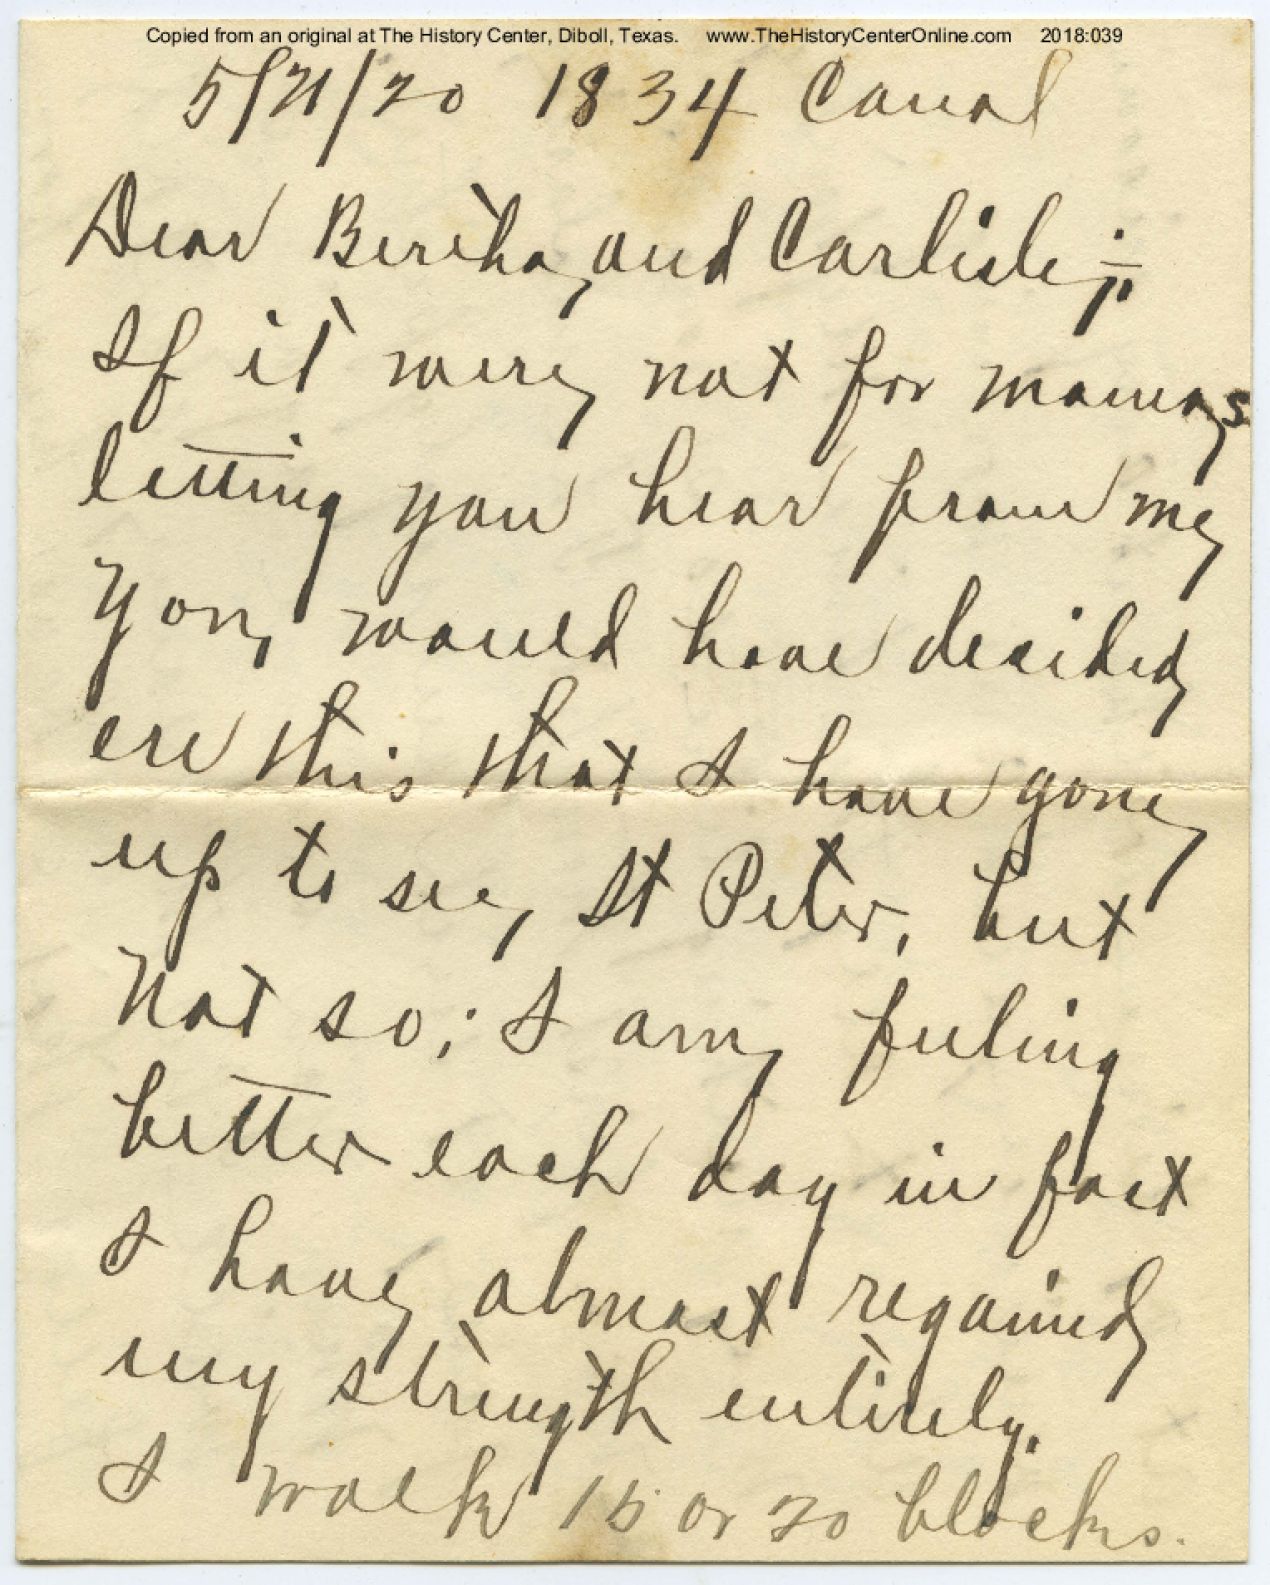 Copied from an original at The History Center, Diboll, Texas. www.TheHistoryCenterOnline.com 2018:039
5/21/20 1834 Canal
Dear Bertha, and Carlisle;-
If it were not for mamas
letting you hear from me
you would have decided
ere this that I have gone
up to see, St Peter, but
not so; I am feeling
better each day in fact
I have almost regained
my strength entirely.
I walk 15 or 20 blocks.